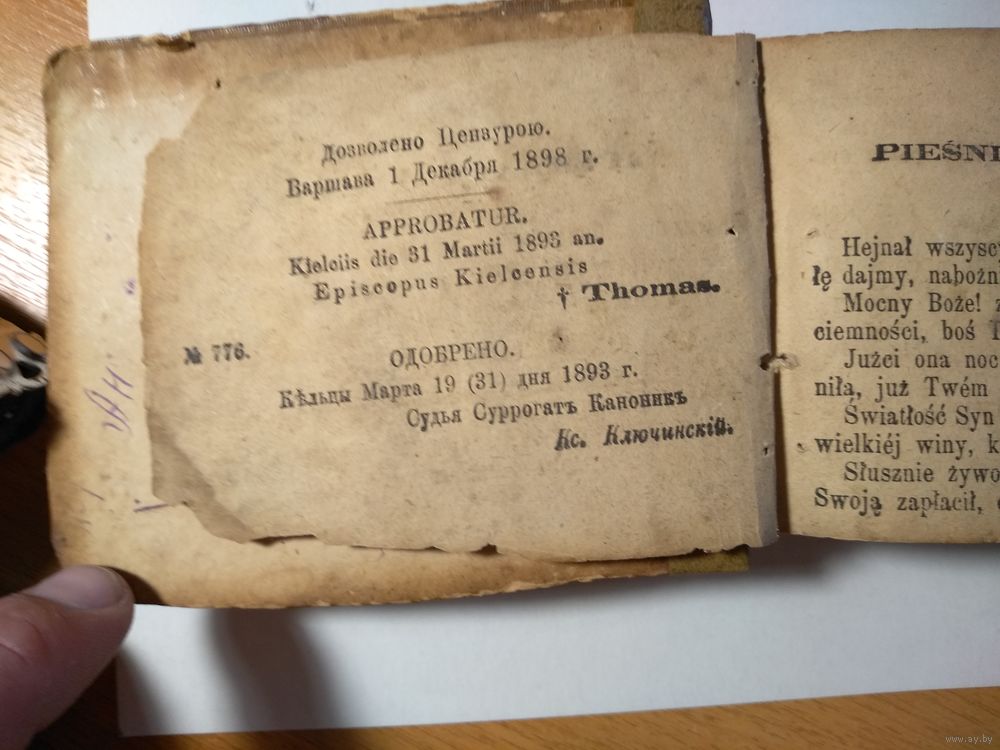 Дозволено Цензурою.
Варшава 1 Декабря 1898 г.
APPROBATUR.
Kielciis die 31 Martii 1893 an.
Episcopus Kielcensis
† Thomas.
№ 776.
ОДОБРЕНО.
Кѣльцы Марта 19 (31) дня 1893 г.
Судья Суррогатъ Каноникъ
Кс. Ключинскій.
PIEŚNI
Hejnał wszyscy
łę dajmy, nabożn
Mocny Boże! z
ciemności, boś
Jużci ona noc
niła, już Twém
Światłość Syn
wielkiéj winy, k
Słusznie żywo
Swoją zapłacił,
www.ay.by